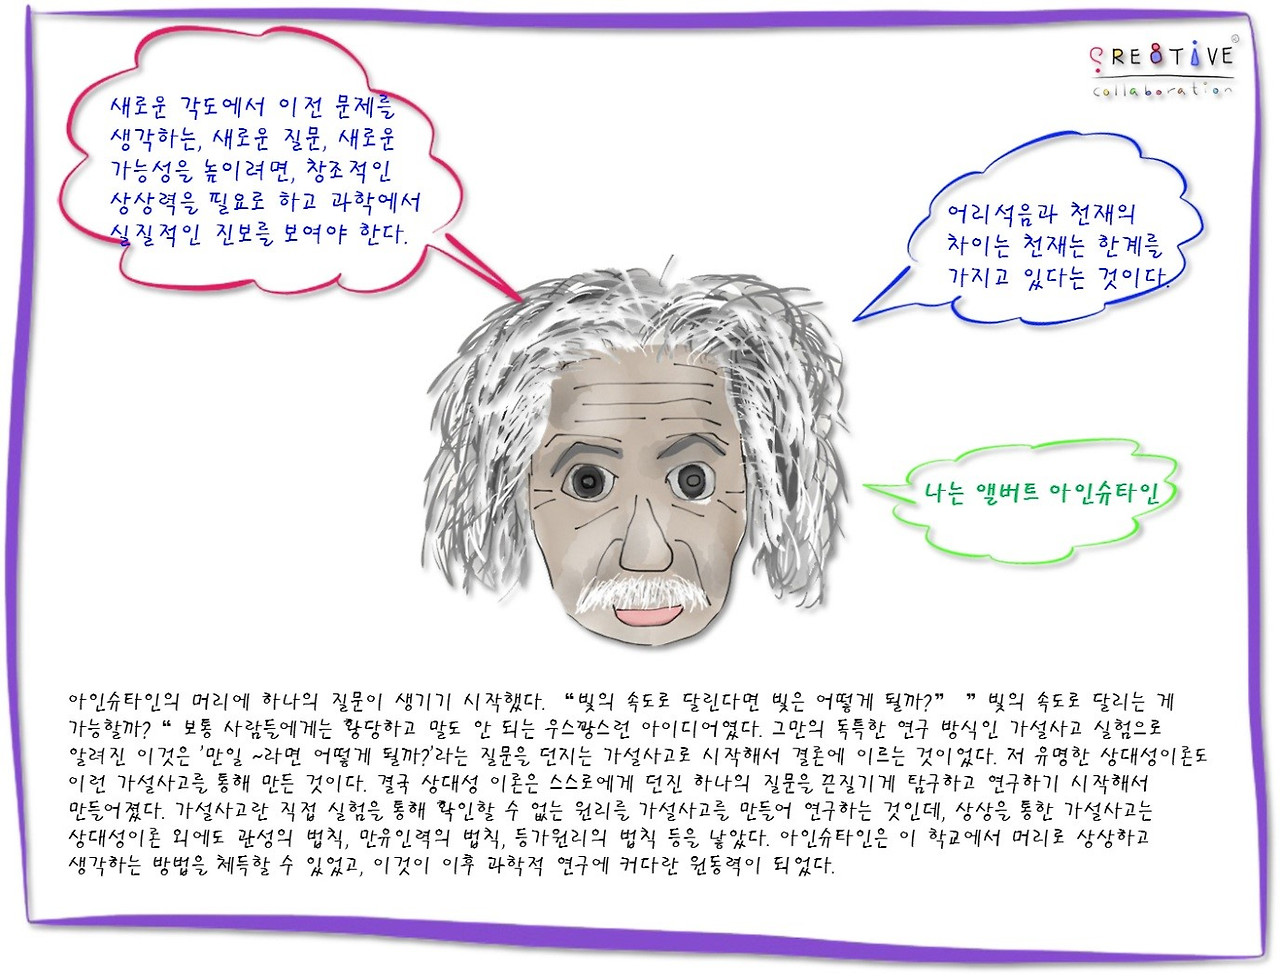 새로운 각도에서 이전 문제를
생각하는, 새로운 질문, 새로운
가능성을 높이려면, 창조적인
상상력을 필요로 하고 과학에서
실질적인 진보를 보여야 한다.
CRE8TIVE
collaboration
어리석음과 천재의
차이는 천재는 한계를
가지고 있다는 것이다.
나는 앨버트 아인슈타인
아인슈타인의 머리에 하나의 질문이 생기기 시작했다. “빛의 속도로 달린다면 빛은 어떻게 될까?” ” 빛의 속도로 달리는 게
가능할까? “ 보통 사람들에게는 황당하고 말도 안 되는 우스꽝스런 아이디어였다. 그만의 독특한 연구 방식인 가설사고 실험으로
알려진 이것은 '만일 ~라면 어떻게 될까?'라는 질문을 던지는 가설사고로 시작해서 결론에 이르는 것이었다. 저 유명한 상대성이론도
이런 가설사고를 통해 만든 것이다. 결국 상대성 이론은 스스로에게 던진 하나의 질문을 끈질기게 탐구하고 연구하기 시작해서
만들어졌다. 가설사고란 직접 실험을 통해 확인할 수 없는 원리를 가설사고를 만들어 연구하는 것인데, 상상을 통한 가설사고는
상대성이론 외에도 관성의 법칙, 만유인력의 법칙, 등가원리의 법칙 등을 낳았다. 아인슈타인은 이 학교에서 머리로 상상하고
생각하는 방법을 체득할 수 있었고, 이것이 이후 과학적 연구에 커다란 원동력이 되었다.